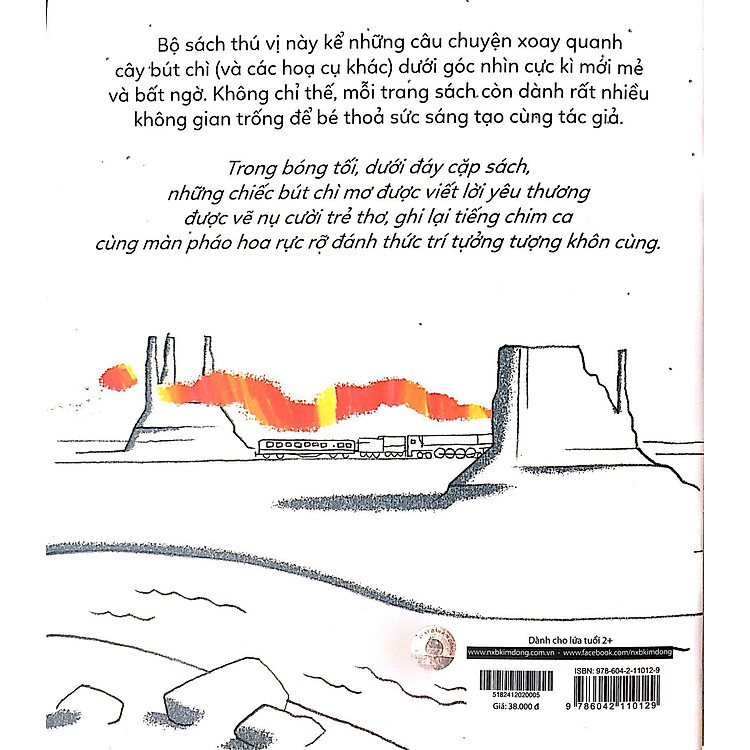 Bộ sách thú vị này kể những câu chuyện xoay quanh
cây bút chì (và các hoạ cụ khác) dưới góc nhìn cực kì mới mẻ
và bất ngờ. Không chỉ thế, mỗi trang sách còn dành rất nhiều
không gian trống để bé thoả sức sáng tạo cùng tác giả.
Trong bóng tối, dưới đáy cặp sách,
những chiếc bút chì mơ được viết lời yêu thương
được vẽ nụ cười trẻ thơ, ghi lại tiếng chim ca
cùng màn pháo hoa rực rỡ đánh thức trí tưởng tượng khôn cùng.
Dành cho lứa tuổi 2+
www.nxbkimdong.com.vn - www.facebook.com/nxbkimdong
ISBN: 978-604-2-11012-9
5182412020005
Giá: 38.000 đ
9 786042 110129